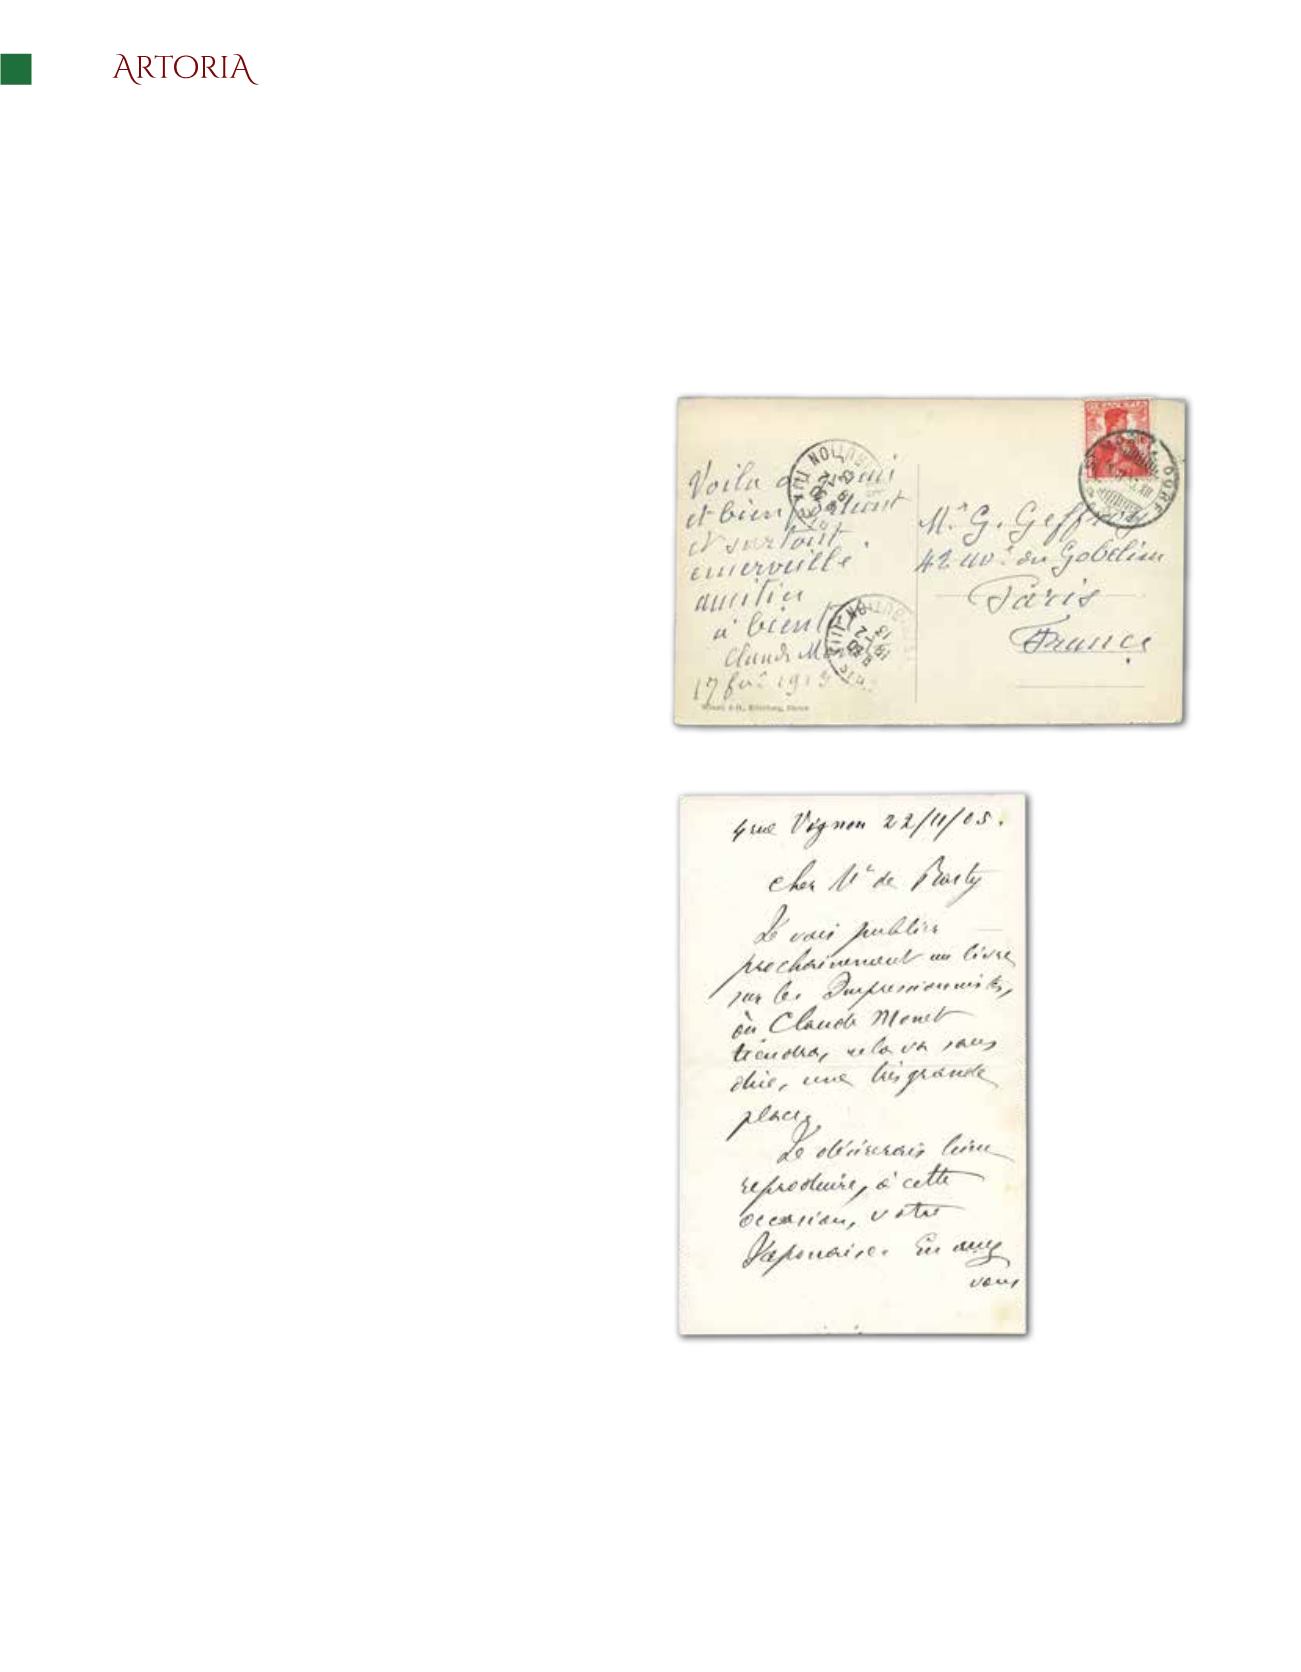 ARTORIA
HELVETIA
Voilà
et bien
et surtout
émerveillé
amitiés
à bientôt
Claude Monet
17 fév. 1913
Mr G. Geffroy
42 av. des Gobelins
Paris
France
ST. MORITZ DORF
4 rue Vignon 22/11/05.
Cher Mr de
Je vais publier
prochainement un livre
sur les Impressionnistes,
où Claude Monet
tiendra, cela va sans
dire, une très grande
place.
Je désirerais bien
reproduire, à cette
occasion, votre
Japonaise. En
vous